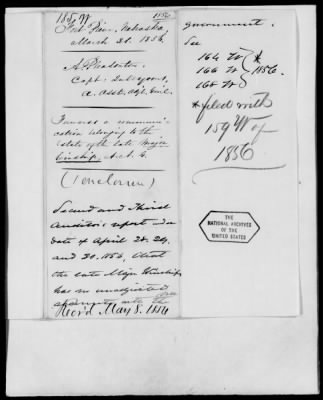 159 W. 1856
Fort Pierre, Nebraska,
March 21. 1856.
Capt: Subsequent,
a. Asst. Adjt. Genl.
Forwards a communi-
cation belonging to the
estate of the late Major
(1 enclosure)
Second and Third
Auditors report under
date of April 28. 29,
and 30. 1856, that
the late Major
has no unadjusted
accounts with the
Rec'd May 8. 1856
government.
See
164 W
166 W 1856.
168 W
* filed with
159 W of
1856
THE
NATIONAL ARCHIVES
OF THE
UNITED STATES